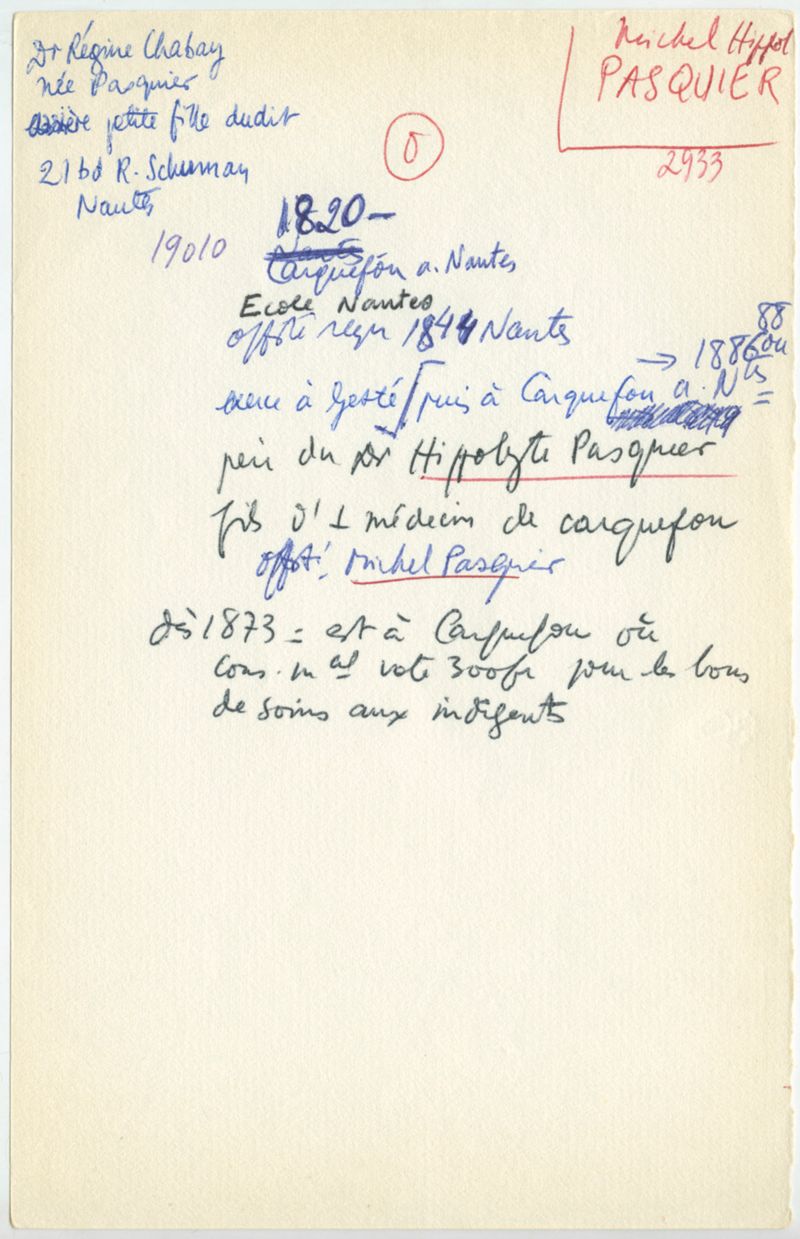 Dr Régine Chabay
née Pasquier
arrière petite fille dudit
21 bd R. Schuman
Nantes
Michel Hippol
PASQUIER
2933
0
1820 –
19010
Nantes
Carquefou a. Nantes
Ecole Nantes
offsté reçu 1844 Nantes
88
→ 1886 ou
exerce à Gesté / puis à Carquefou a. Ntes =
père du Dr Hippolyte Pasquier
fils d'1 médecin de carquefou
offsté Michel Pasquier
dès 1873 = est à Carquefou où
cons. mal vote 300fr pour les bons
de soins aux indigents